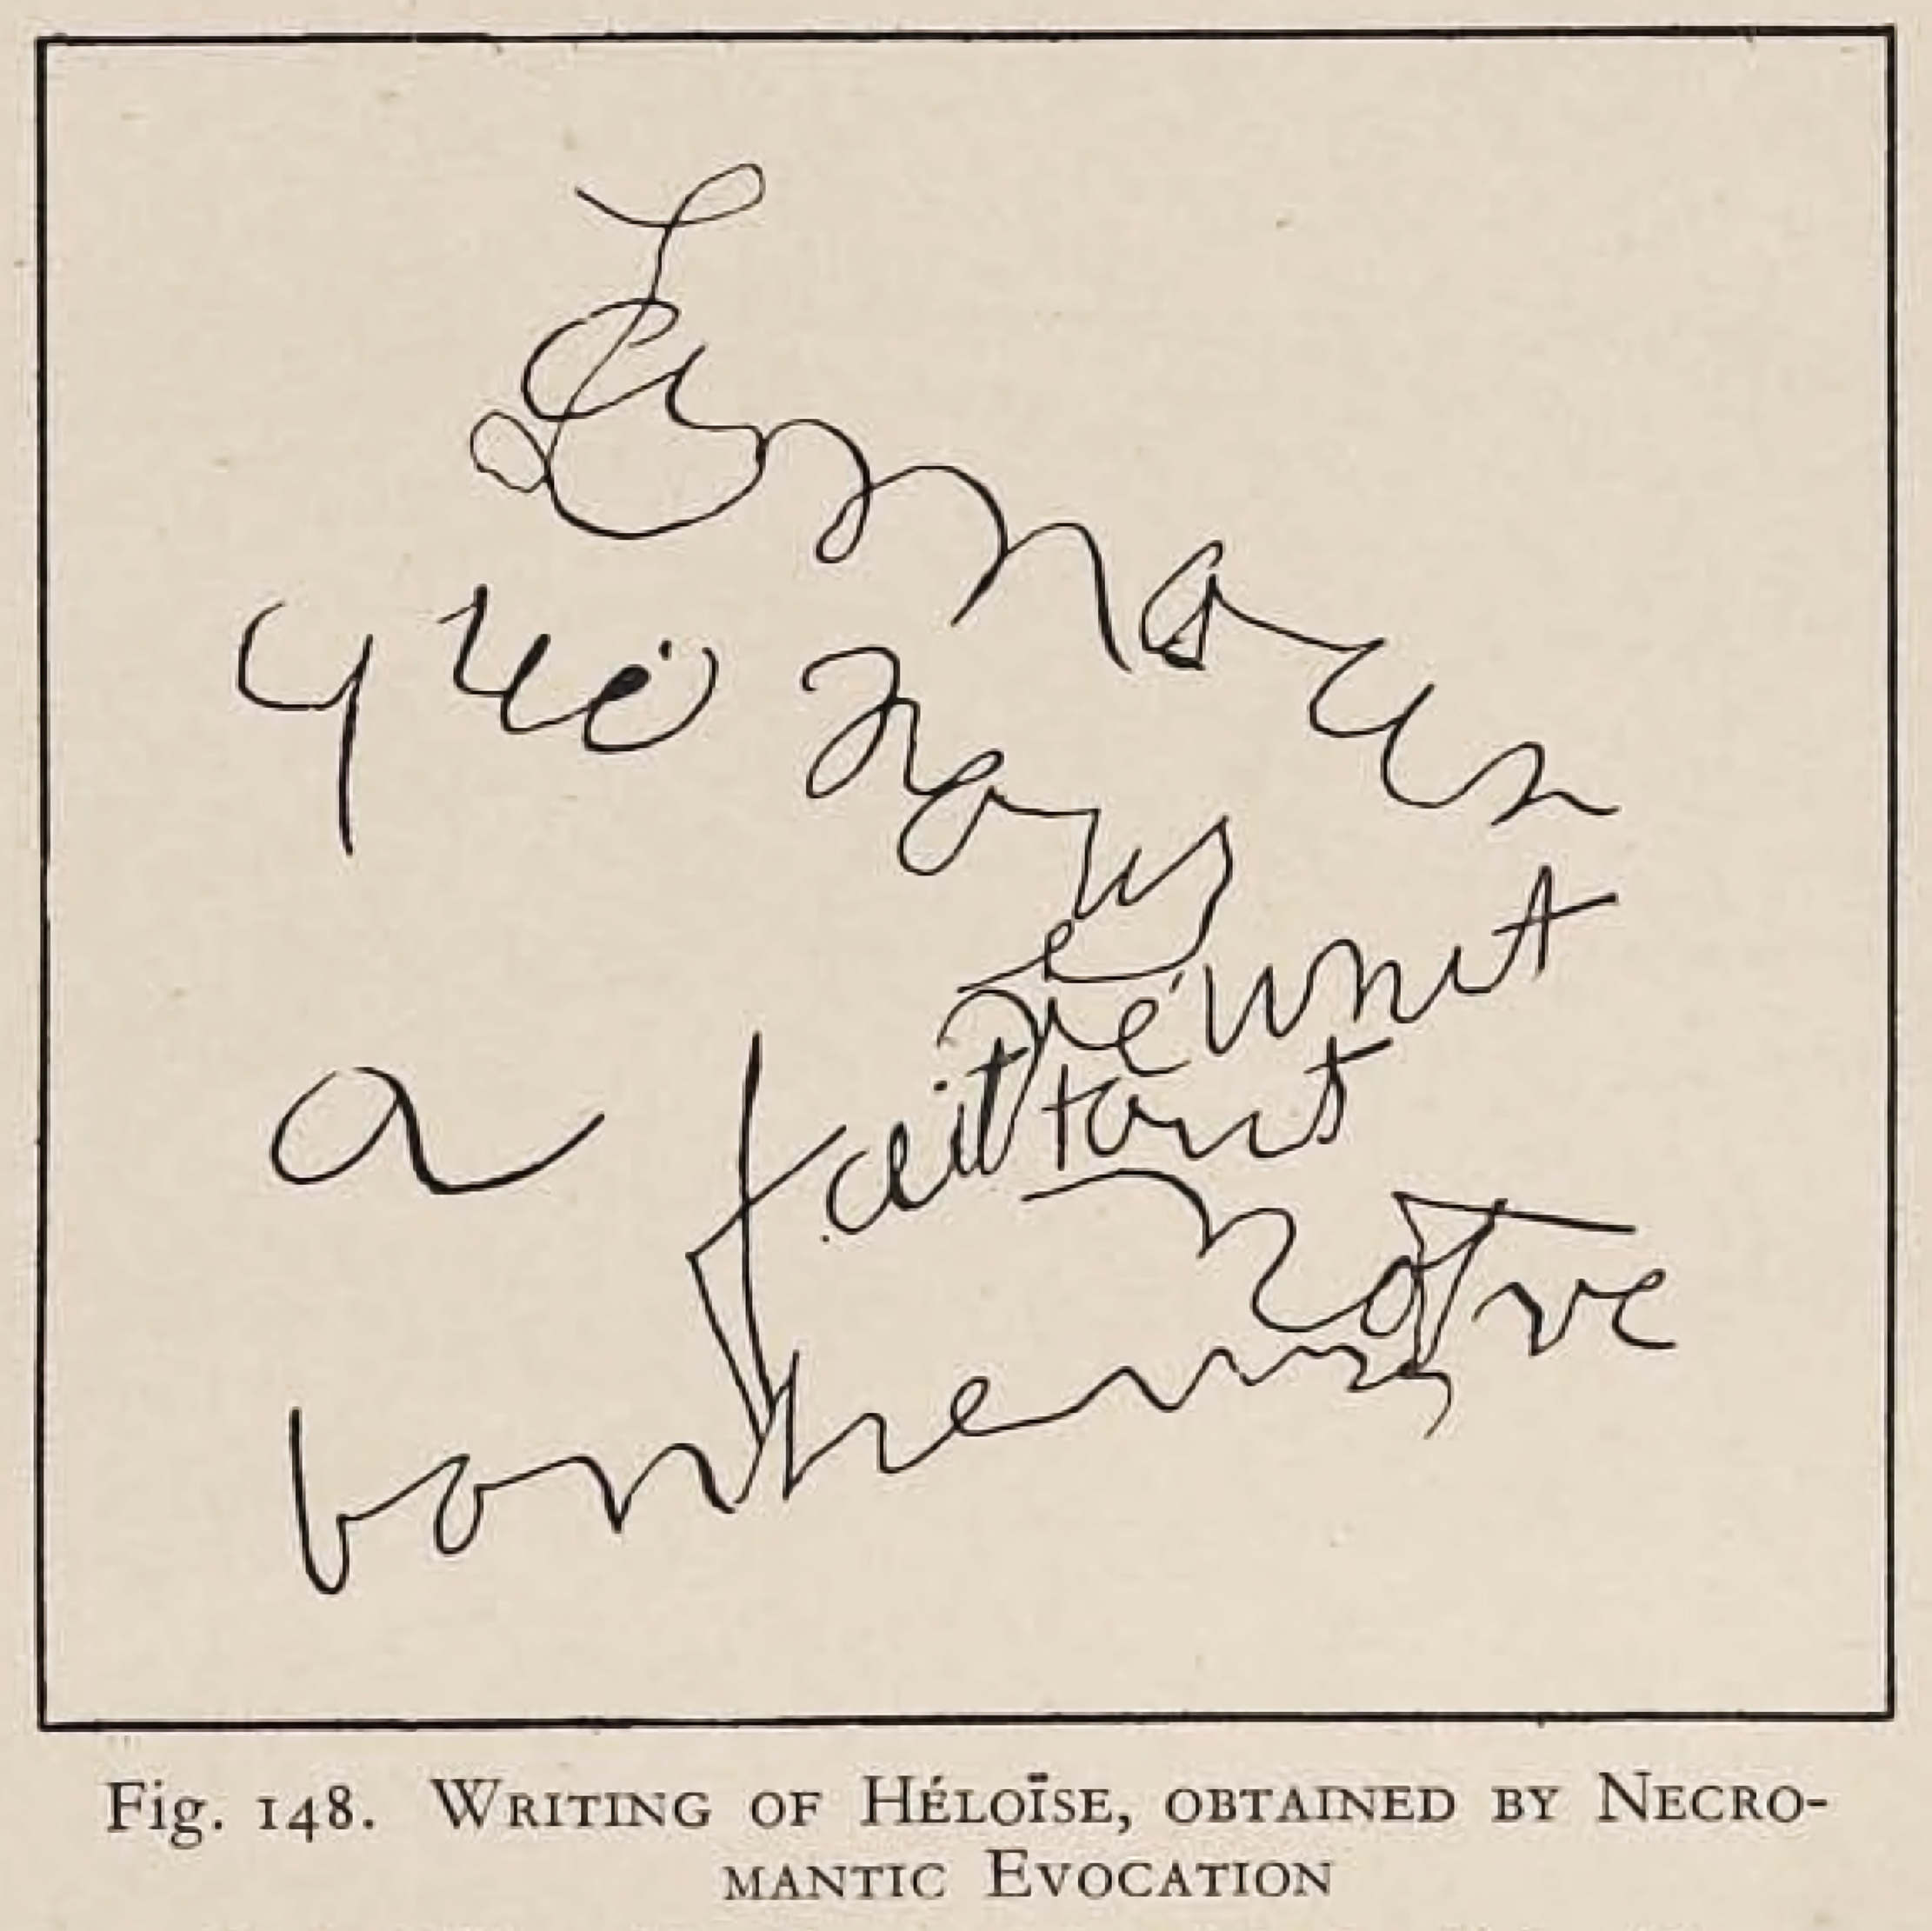 L'amour
qui nous
réunit
a fait tout
notre
bonheur
Fig. 148. Writing of Héloïse, obtained by Necro-
mantic Evocation